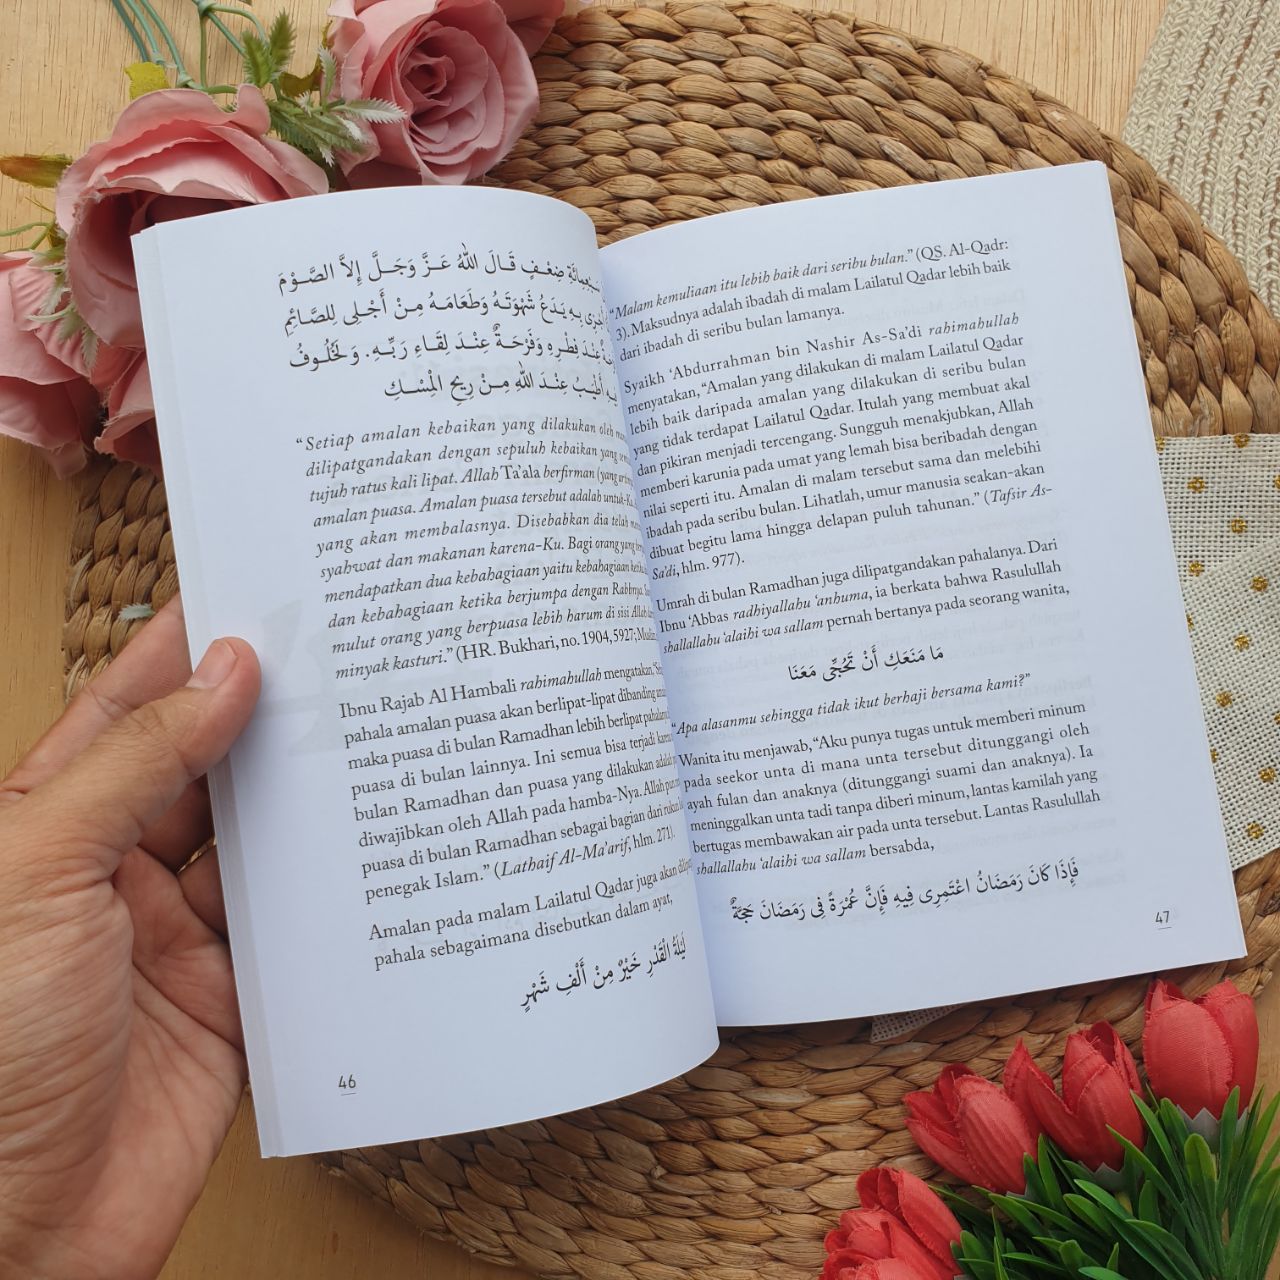 ضِعْفٍ قَالَ اللهُ عَزَّ وَجَلَّ إِلاَّ الصَّوْمَ
بِهِ يَدَعُ شَهْوَتَهُ وَطَعَامَهُ مِنْ أَجْلِى لِلصَّائِمِ
عِنْدَ فِطْرِهِ وَفَرْحَةٌ عِنْدَ لِقَاءِ رَبِّهِ. وَلَخُلُوفُ
أَطْيَبُ عِنْدَ اللهِ مِنْ رِيحِ الْمِسْكِ
“Setiap amalan kebaikan yang dilakukan oleh
dilipatgandakan dengan sepuluh kebaikan yang
tujuh ratus kali lipat. Allah Ta’ala berfirman (yang
amalan puasa. Amalan puasa tersebut adalah untuk-Ku.
yang akan membalasnya. Disebabkan dia telah
syahwat dan makanan karena-Ku. Bagi orang yang
mendapatkan dua kebahagiaan yaitu kebahagiaan
dan kebahagiaan ketika berjumpa dengan Rabbnya.
mulut orang yang berpuasa lebih harum di sisi Allah
minyak kasturi.” (HR. Bukhari, no. 1904, 5927;
Ibnu Rajab Al Hambali rahimahullah mengatakan,
pahala amalan puasa akan berlipat-lipat dibanding
maka puasa di bulan Ramadhan lebih berlipat
puasa di bulan lainnya. Ini semua bisa terjadi karena
bulan Ramadhan dan puasa yang dilakukan adalah
diwajibkan oleh Allah pada hamba-Nya. Allah
puasa di bulan Ramadhan sebagai bagian dari
penegak Islam.” (Lathaif Al-Ma’arif, hlm. 271).
Amalan pada malam Lailatul Qadar juga akan
pahala sebagaimana disebutkan dalam ayat,
لَيْلَةُ الْقَدْرِ خَيْرٌ مِنْ أَلْفِ شَهْرٍ
46
“Malam kemuliaan itu lebih baik dari seribu bulan.” (QS. Al-Qadr:
3). Maksudnya adalah ibadah di malam Lailatul Qadar lebih baik
dari ibadah di seribu bulan lamanya.
Syaikh ‘Abdurrahman bin Nashir As-Sa’di rahimahullah
menyatakan, “Amalan yang dilakukan di malam Lailatul Qadar
lebih baik daripada amalan yang dilakukan di seribu bulan
yang tidak terdapat Lailatul Qadar. Itulah yang membuat akal
dan pikiran menjadi tercengang. Sungguh menakjubkan, Allah
memberi karunia pada umat yang lemah bisa beribadah dengan
nilai seperti itu. Amalan di malam tersebut sama dan melebihi
ibadah pada seribu bulan. Lihatlah, umur manusia seakan-akan
dibuat begitu lama hingga delapan puluh tahunan.” (Tafsir As-
Sa’di, hlm. 977).
Umrah di bulan Ramadhan juga dilipatgandakan pahalanya. Dari
Ibnu ‘Abbas radhiyallahu ‘anhuma, ia berkata bahwa Rasulullah
shallallahu ‘alaihi wa sallam pernah bertanya pada seorang wanita,
مَا مَنَعَكِ أَنْ تَحُجِّى مَعَنَا
“Apa alasanmu sehingga tidak ikut berhaji bersama kami?”
Wanita itu menjawab, “Aku punya tugas untuk memberi minum
pada seekor unta di mana unta tersebut ditunggangi oleh
ayah fulan dan anaknya (ditunggangi suami dan anaknya). Ia
meninggalkan unta tadi tanpa diberi minum, lantas kamilah yang
bertugas membawakan air pada unta tersebut. Lantas Rasulullah
shallallahu ‘alaihi wa sallam bersabda,
فَإِذَا كَانَ رَمَضَانُ اعْتَمِرِى فِيهِ فَإِنَّ عُمْرَةً فِى رَمَضَانَ حَجَّةٌ
47